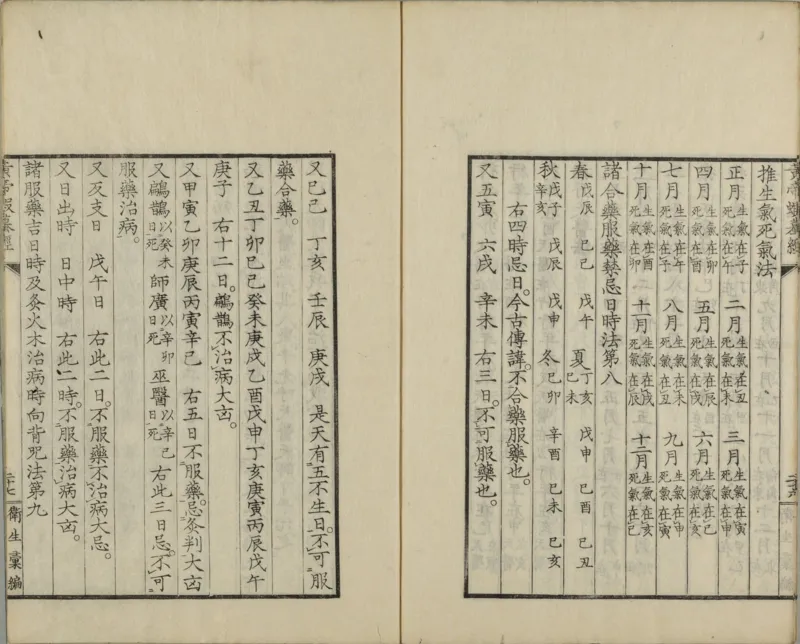 推生氣死氣法
正月 生氣在子 死氣在午 二月 生氣在丑 死氣在未 三月 生氣在寅 死氣在申
四月 生氣在卯 死氣在酉 五月 生氣在辰 死氣在戌 六月 生氣在巳 死氣在亥
七月 生氣在午 死氣在子 八月 生氣在未 死氣在丑 九月 生氣在申 死氣在寅
十月 生氣在酉 死氣在卯 十一月 生氣在戌 死氣在辰 十二月 生氣在亥 死氣在巳
諸合藥服藥禁忌日時法第八
春 戊辰 己巳 戊午 夏 丁亥 己未 戊申 己酉 己丑
秋 戊子 辛亥 戊辰 戊申 冬 己卯 辛酉 己未 己亥
右四時忌日。今古傳諱。不合藥服藥也。
又五寅 六戌 辛未 右三日。不可服藥也。
又己巳 丁亥 壬辰 庚戌 是天有五不生日。不可服
藥合藥。
又乙丑丁卯己巳癸未庚戌乙酉戊申丁亥庚寅丙辰戊午
庚子 右十二日。鶣鵲不治病大凶。
又甲寅乙卯庚辰丙寅辛巳 右五日不服藥。忌灸判大凶
又鶣鵲 以癸未日死 師廣 以辛卯日死 巫醫 以辛巳日死 右此三日忌。不可
服藥治病。
又反支日 戊午日 右此二日。不服藥不治病大忌。
又日出時 日中時 右此二時。不服藥治病大凶。
諸服藥吉日時及灸火木治病時向背咒法第九
黃帝蝦蟇經
二十七
衛生彙編